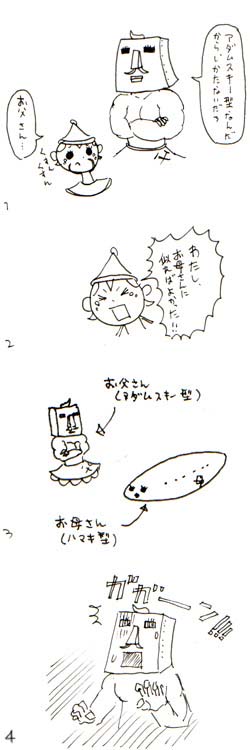 アダムスキー型なんだ
からしかたないだろ
お父さん…
くすん
くすん
1
わたし、
お母さんに
似ればよかった!!
2
お父さん
(アダムスキー型)
お母さん
(ハマキ型)
3
ガガーーン!!!
4